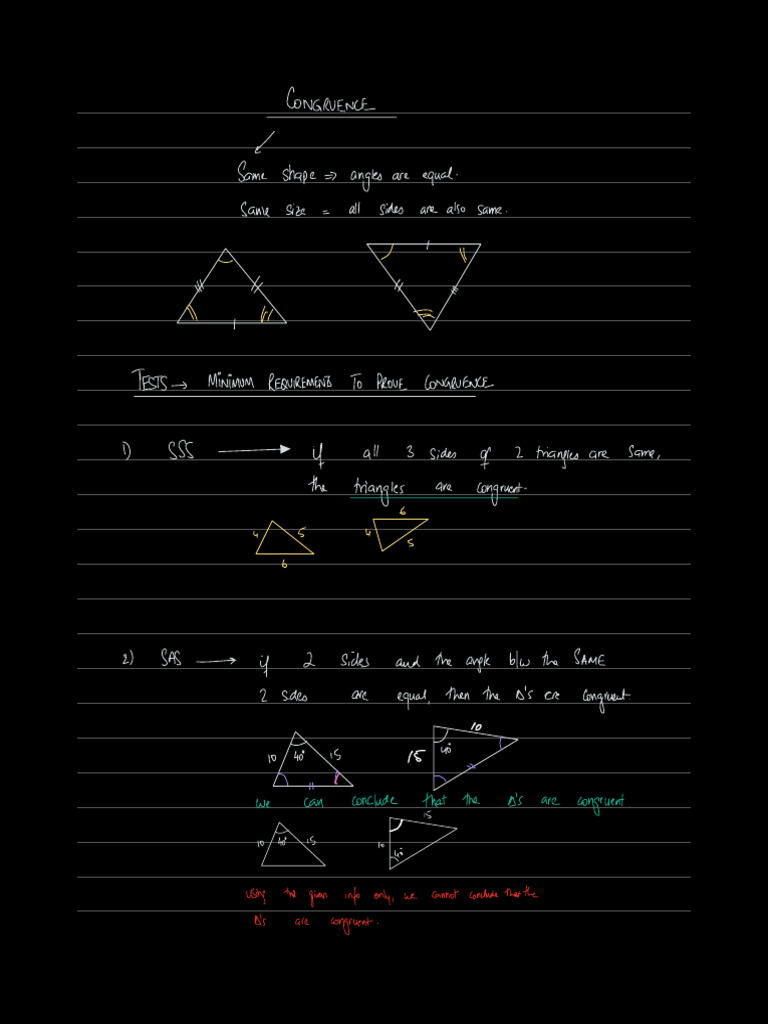 CONGRUENCE
Same shape ⇒ angles are equal.
Same size = all sides are also same.
TESTS → MINIMUM REQUIREMENTS TO PROVE CONGRUENCE
1) SSS → if all 3 sides of 2 triangles are same,
the triangles are congruent.
4 5 6
6 4 5
2) SAS → if 2 sides and the angle b/w the SAME
2 sides are equal, then the Δ's are congruent
10 40° 15
10 15 40°
we can conclude that the Δ's are congruent
10 40° 15
15 10 40°
using the given info only, we cannot conclude that the
Δ's are congruent.